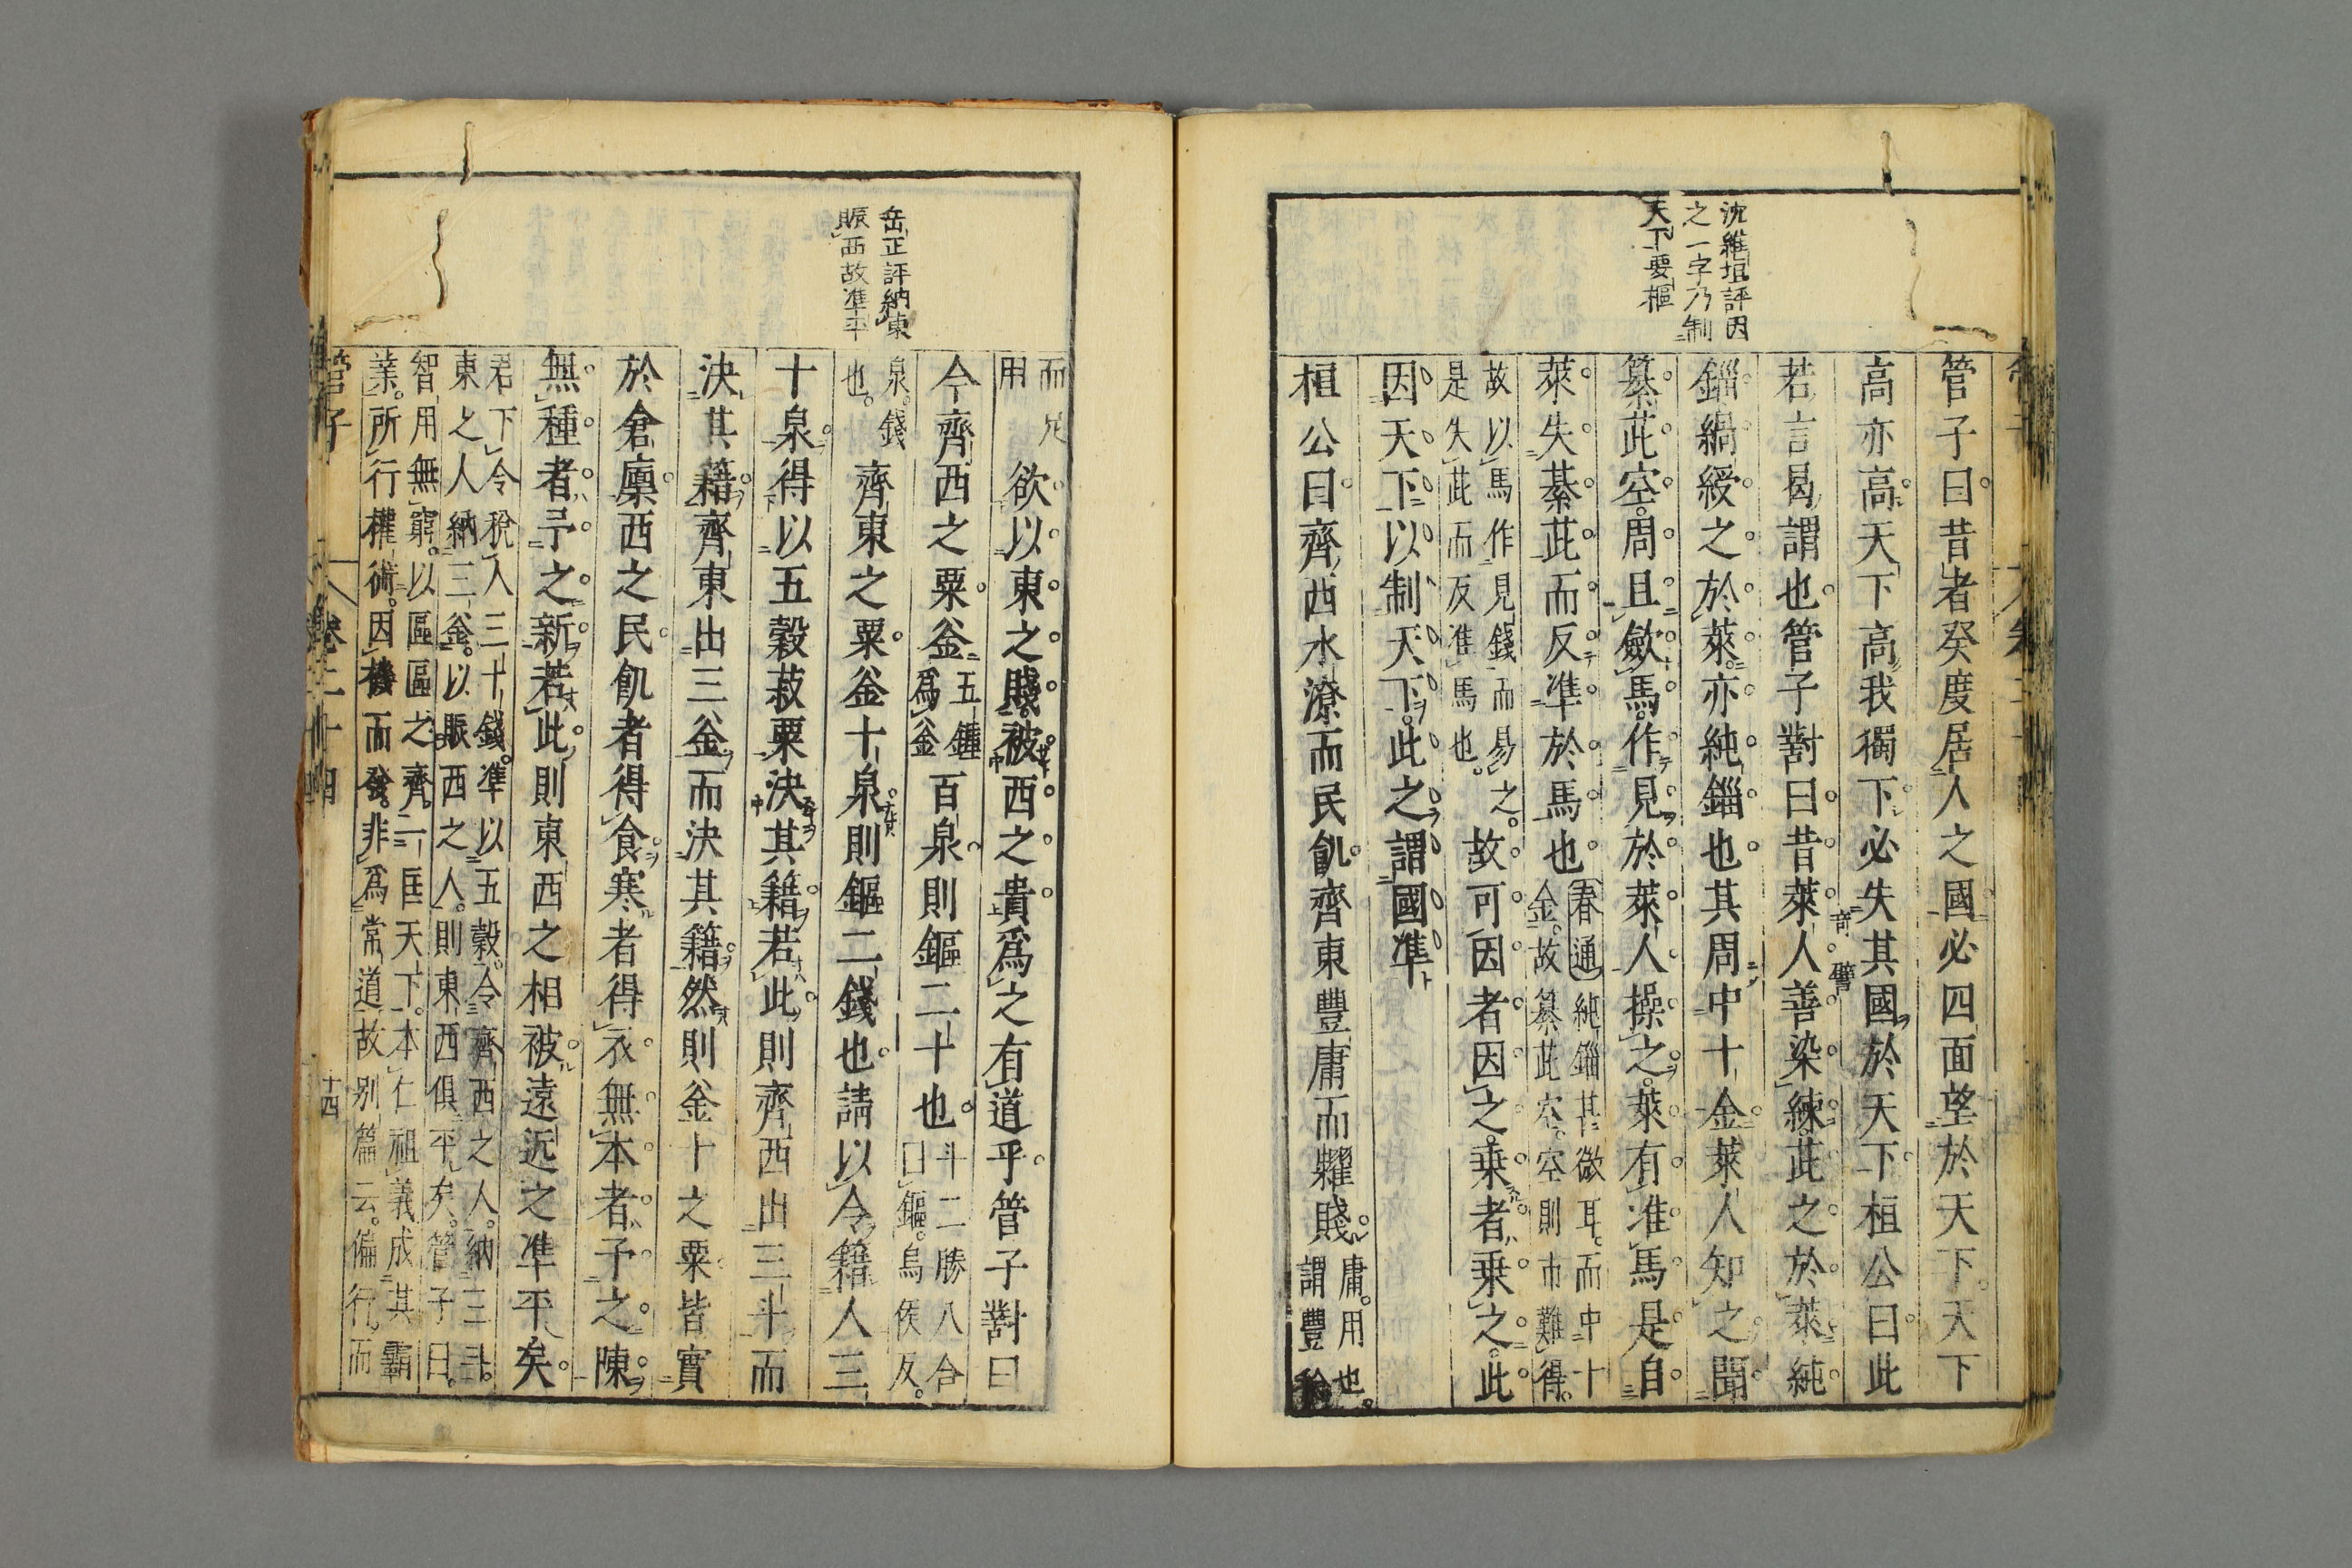 沈維垣評因
之一字乃制
天下要樞
管子曰昔者癸度居人之國必四面望於天下天下
高亦高天下高我獨下必失其國於天下桓公曰此
若言曷謂也管子對曰昔萊人善染練茈之於萊純
錙緺綬之於萊亦純錙也其周中十金萊人知之聞
纂茈空周且斂馬作見於萊人操之萊有准馬是自
萊失綦茈而反準於馬也春通純錙其斂耳而中十
金故纂茈空空則市難得
故以馬作見錢而易之
是失茈而反准馬也故可因者因之乗者乗之此
因天下以制天下此之謂國準
桓公曰齊西水潦而民飢齊東豐庸而糶賤庸用也
謂豐稔
岳正評納東
賑西故準平
而足
用欲以東之賤被西之貴爲之有道乎管子對曰
今齊西之粟釜五鍾
爲釜百泉則鏂二十也斗二勝八合
曰鏂烏侯反
泉錢
也齊東之粟釜十泉則鏂二錢也請以令籍人三
十泉得以五穀菽粟決其籍若此則齊西出三斗而
決其籍齊東出三釜而決其籍然則釜十之粟皆實
於倉廩西之民飢者得食寒者得衣無本者予之陳
無種者予之新若此則東西之相被遠近之準平矣
君下令稅人三十錢準以五穀令齊西之人納三斗
東之人納三釜以賑西之人則東西俱平矣管子曰
智用無窮以區區之齊一匡天下本仁祖義成其霸
業所行權術因機而發非爲常道故别篇云偏行而
管子
卷二十四
十四